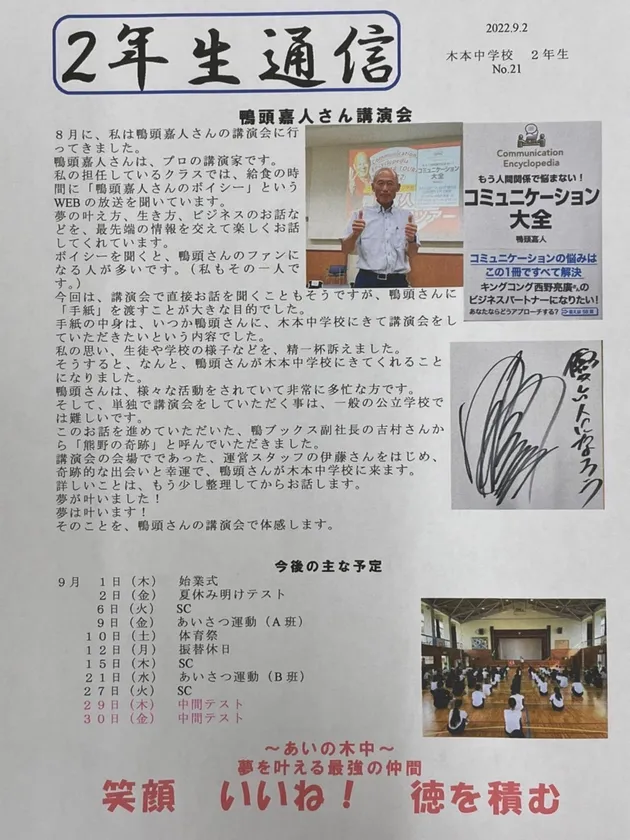 2年生通信
2022.9.2
木本中学校 2年生
No.21
鴨頭嘉人さん講演会
8月に、私は鴨頭嘉人さんの講演会に行
ってきました。
鴨頭嘉人さんは、プロの講演家です。
私の担任しているクラスでは、給食の時
間に「鴨頭嘉人さんのボイシー」という
WEBの放送を聞いています。
夢の叶え方、生き方、ビジネスのお話な
どを、最先端の情報を交えて楽しくお話
してくれています。
ボイシーを聞くと、鴨頭さんのファンに
なる人が多いです。（私もその一人で
す。）
今回は、講演会で直接お話を聞くこともそうですが、鴨頭さんに
「手紙」を渡すことが大きな目的でした。
手紙の中身は、いつか鴨頭さんに、木本中学校にきて講演会をし
ていただきたいという内容でした。
私の思い、生徒や学校の様子などを、精一杯訴えました。
そうすると、なんと、鴨頭さんが木本中学校にきてくれること
になりました。
鴨頭さんは、様々な活動をされていて非常に多忙な方です。
そして、単独で講演会をしていただく事は、一般の公立学校で
は難しいです。
このお話を進めていただいた、鴨ブックス副社長の吉村さんか
ら「熊野の奇跡」と呼んでいただきました。
講演会の会場でであった、運営スタッフの伊藤さんをはじめ、
奇跡的な出会いと幸運で、鴨頭さんが木本中学校に来ます。
詳しいことは、もう少し整理してからお話します。
夢が叶いました！
夢は叶います！
そのことを、鴨頭さんの講演会で体感します。
Communication
Encyclopedia
もう人間関係で悩まない！
コミュニケーション
大全
鴨頭嘉人
コミュニケーションの悩みは
この1冊ですべて解決
キングコング西野亮廣さんの
ビジネスパートナーになりたい！
あなたならどうアプローチする？
今後の主な予定
9月 1日（木） 始業式
2日（金） 夏休み明けテスト
6日（火） SC
9日（金） あいさつ運動（A班）
10日（土） 体育祭
12日（月） 振替休日
15日（木） SC
21日（水） あいさつ運動（B班）
27日（火） SC
29日（木） 中間テスト
30日（金） 中間テスト
～あいの木中～
夢を叶える最強の仲間
笑顔 いいね！ 徳を積む